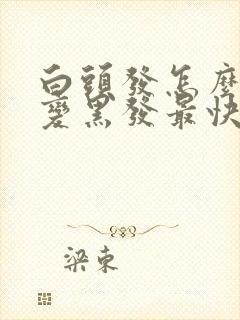 白頭發怎麼
變黑發最快
梁東